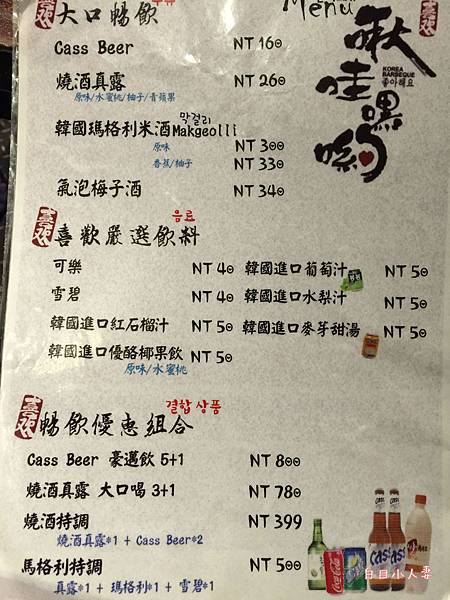 Menu
啾哇嘿喲
KOREA
BARBEQUE
좋아해요
喜歡
大口暢飲
Cass Beer NT 160
燒酒真露 NT 260
原味/水蜜桃/柚子/青蘋果
막걸리
韓國瑪格利米酒Makgeolli
原味 NT 300
香蕉/柚子 NT 330
氣泡梅子酒 NT 340
음료
喜歡 喜歡嚴選飲料
可樂 NT 40 韓國進口葡萄汁 NT 50
雪碧 NT 40 韓國進口水梨汁 NT 50
韓國進口紅石榴汁 NT 50 韓國進口麥芽甜湯 NT 50
韓國進口優酪椰果飲 NT 50
原味/水蜜桃
결합 상품
喜歡 暢飲優惠組合
Cass Beer 豪邁飲 5+1 NT 800
燒酒真露 大口喝 3+1 NT 780
燒酒特調 NT 399
燒酒真露*1 + Cass Beer*2
馬格利特調 NT 500
真露*1 + 瑪格利*1 + 雪碧*1
Cass
Cass
白目小人妻